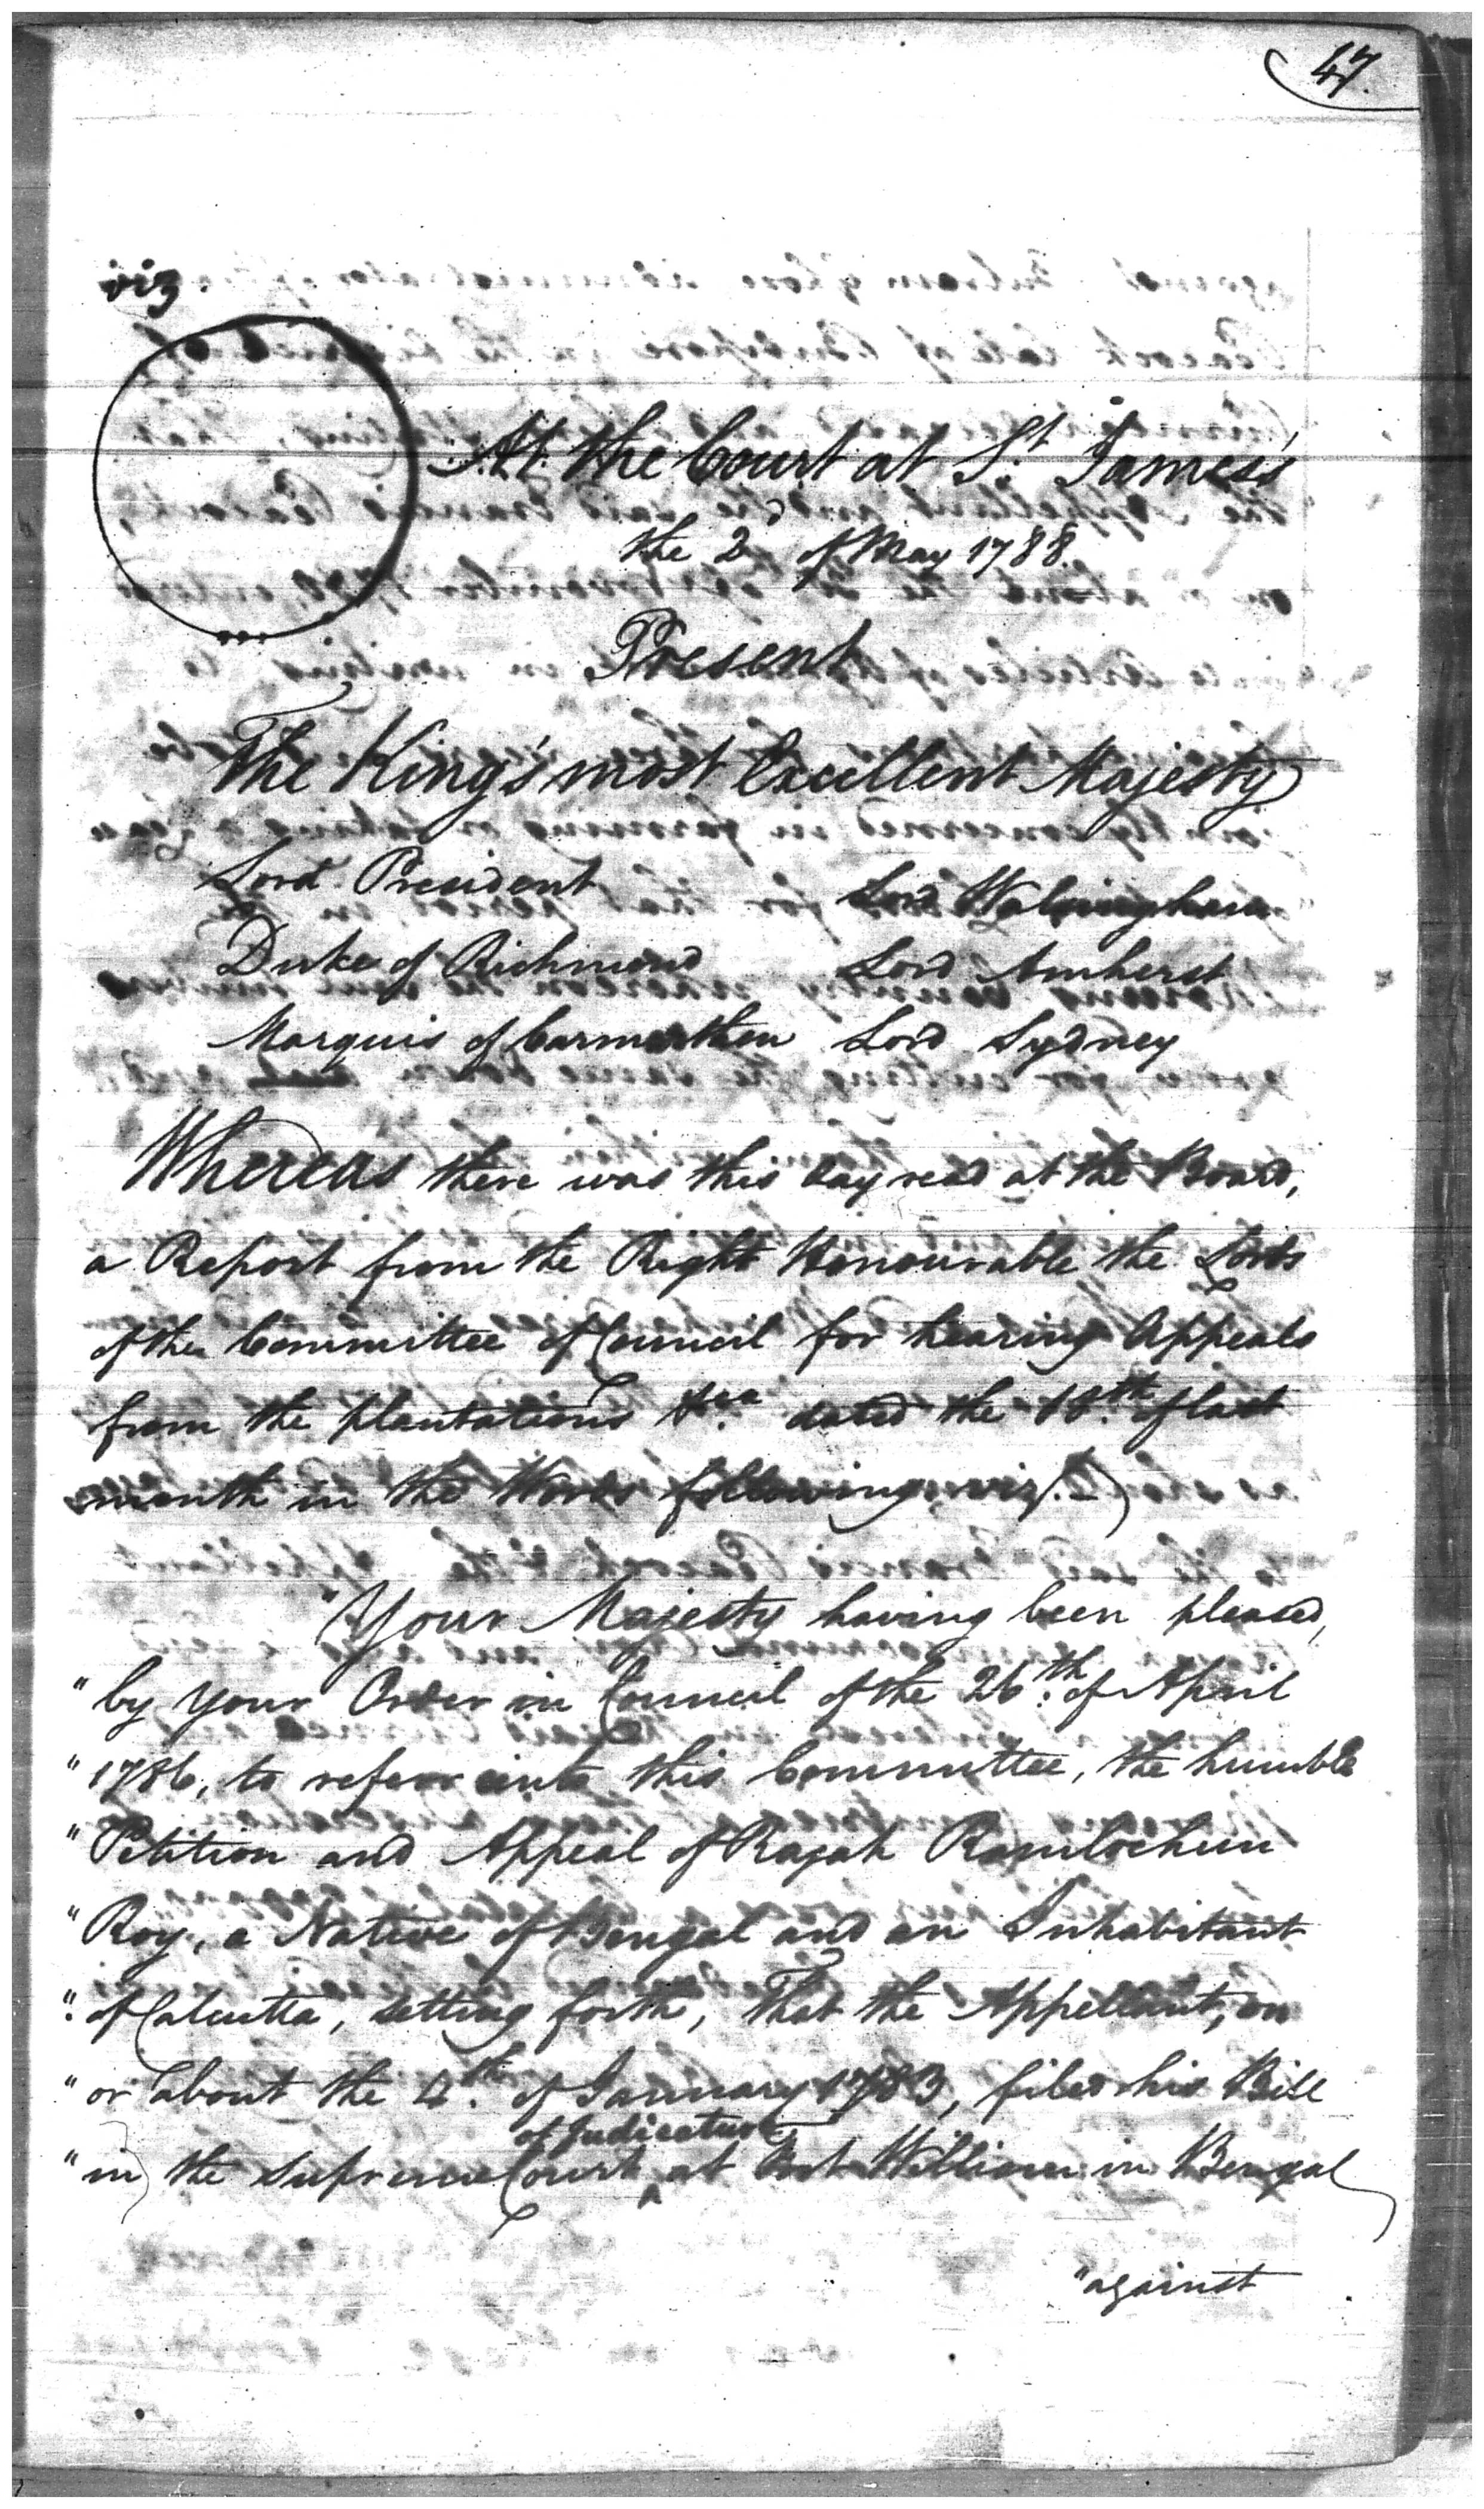 47.
viz
At the Court at St. James's
the 2d of May 1788.
Present
The King's most Excellent Majesty
Lord President Lord Walsingham
Duke of Richmond Lord Amherst
Marquis of Carmarthen Lord Sydney
Whereas there was this day read at the Board,
a Report from the Right Honourable the Lords
of the Committee of Council for hearing Appeals
from the plantations &ca. dated the 18th. of last
month in the Words following, viz.
"Your Majesty having been pleased,
"by Your Order in Council of the 26th. of April
"1786, to referr unto this Committee, the humble
"Petition and Appeal of Rajah Ramlochun
"Roy, a Native of Bengal and an Inhabitant
"of Calcutta, setting forth, That the Appellant, on
"or about the 4th. of January 1783, filed his Bill
"in the Supreme Court of Judicature at Fort William in Bengal
"against